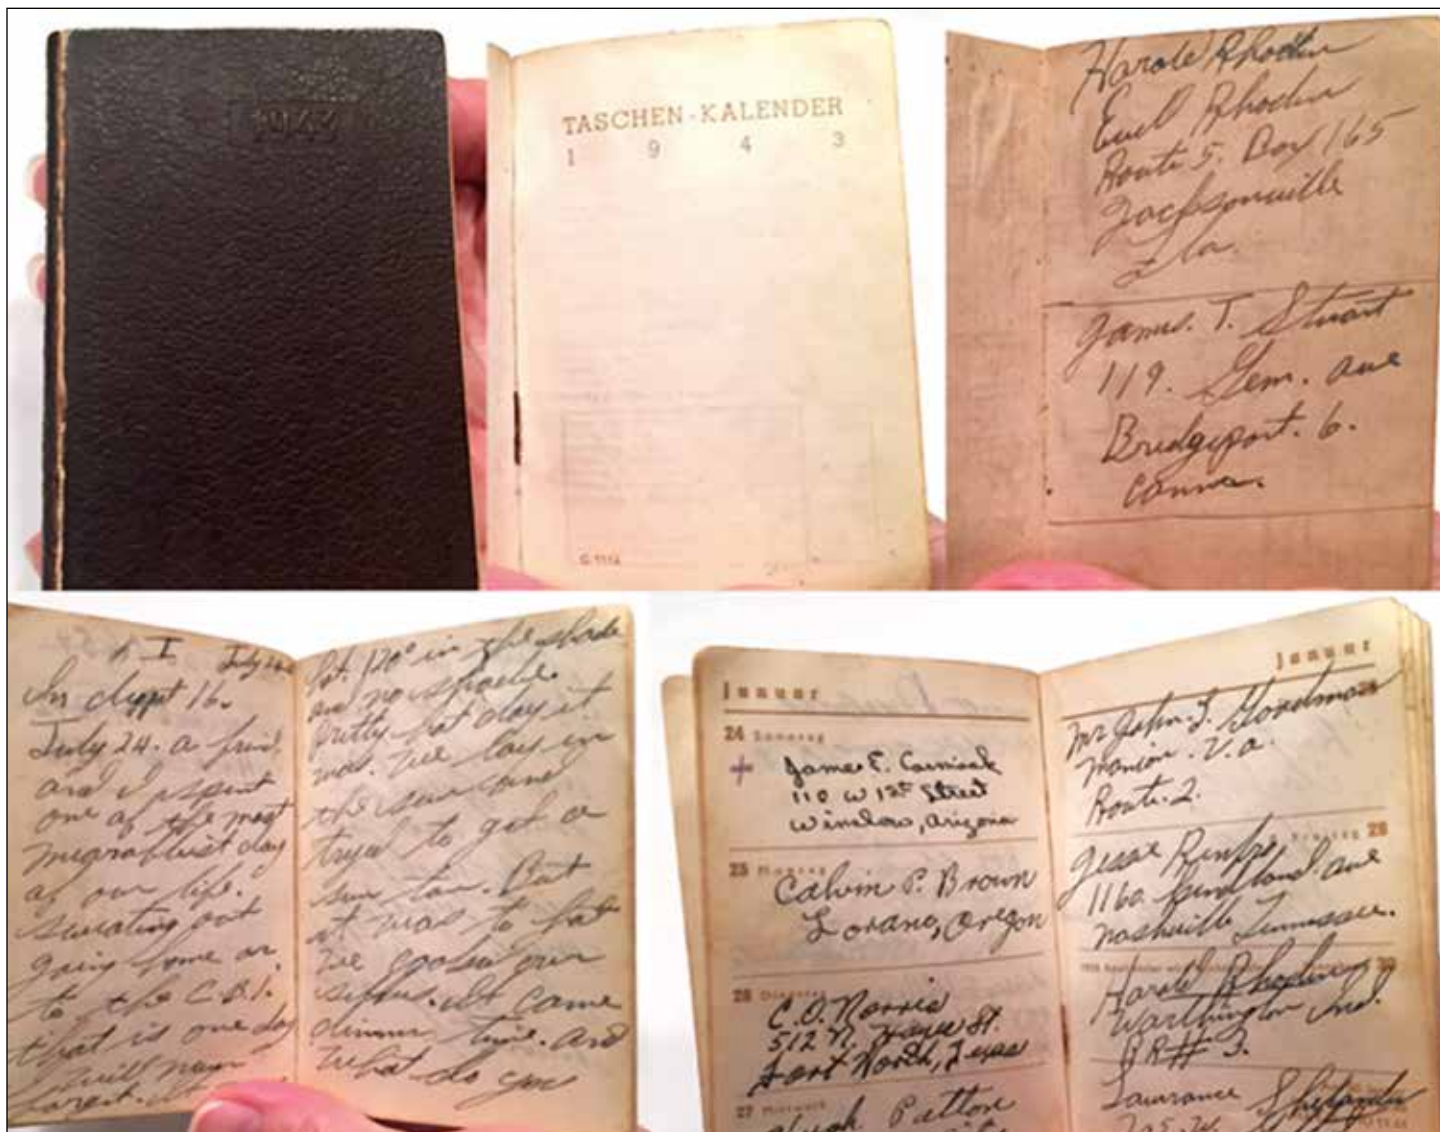 1943
TASCHEN-KALENDER
1 9 4 3
Harold Rhodin
Emil Rhodin
Route 5. Box 165
Jacksonville
Fla.
James. T. Stuart
119. Gem. Ave
Bridgeport. 6.
Conn.
July 24
In Egypt 16.
July 24. a frind
and I spent
one of the most
day
of our life.
sweating out
going home or
to the C.B.I.
that is one day
I will never
forget. It
Got. 120° in the shade
and no shade.
pretty hot day it
was. We lay in
the sun and
tryed to get a
sun tan. But
it was to hot
We
came
dinner time. and
what do you
Januar
24 Sonntag
James E.
110 W 1st Street
Winslow, Arizona
25 Montag
Calvin P. Brown
Lorane, Oregon
26 Dienstag
C.O. Norris
512 N. St.
Fort Worth, Texas
27 Mittwoch
Hugh Patton
Januar
Mr John. F. Goodman
Marion. V.a.
Route. 2.
Freitag
Jessie Renfro
1160. Ave
Nashville Tennessee.
30
Harold Rhodin
Worthington Ind.
RR# 3.
Lawrance